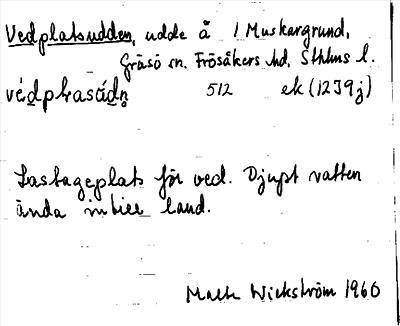 Vedplatsudden, udde å 1 Muskargrund,
Gräsö sn. Frösåkers hd, Sthlms l.
512 ek (12J9j)
Lastageplats för ved. Djupt vatten
ända intill land.
Wickström 1960